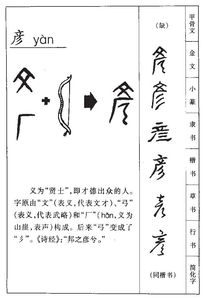 彦 yàn
文
厂
义为“贤士”,即才德出众的人。
字原由“文”(表义,代表文才)、“弓”
(表义,代表武略)和“厂”(hǎn,义为
山崖,表声)构成。后来“弓”变成了
“彡”。《诗经》:“邦之彦兮。”
(缺)
彦
彦
彦
彦
彦
彦
(同楷书)
甲骨文
金文
小篆
隶书
楷书
草书
行书
简化字